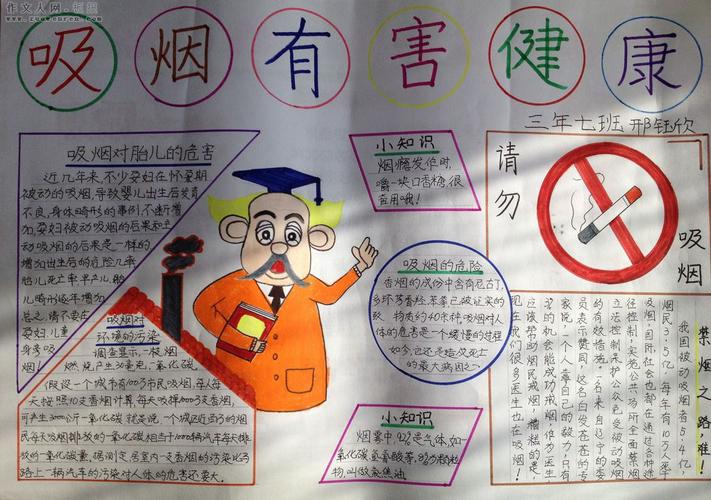 作文人网
吸烟有害健康
三年七班 邢钰欣
吸烟对胎儿的危害
近几年来,不少孕妇在怀孕期
被动的吸烟,导致婴儿出生后发育
不良,身体畸形的事例,不断增
加,孕妇被动吸烟的后果和主
动吸烟的后果是一样的
增加出生后的危险几率
胎儿死亡率早产儿,胎
儿畸形逐年增加
总之,请不要在
孕妇,儿童
身旁吸
烟!
吸烟对
环境的污染
调查显示,一枝烟
燃烧产生30毫克一氧化碳
假设一个城市有100万市民吸烟,每人每
天按照10支香烟计算,每天吸掉1000万支香烟,
可产生3000公斤一氧化碳
就是说,一个城区近百万的烟
民每天吸烟排放的一氧化碳相当于1000辆汽车每天排
放的一氧化碳量。
路上一辆汽车的污染对人体的危害还要大。
小知识
烟瘾发作时,
嚼一块口香糖,很
管用哦!
吸烟的危险
香烟的成份中含有尼古丁,
多环芳香烃,苯等已被证实的致
物质约40来种,吸烟对人
体的危害是一个缓慢的过程
如今,它还是造成死亡
的最大病因之一
小知识
烟雾中,92%是气体,如一
氧化碳、氢氰酸等,8%为颗粒
物,叫做烟焦油。
请勿
吸烟
禁烟之路,难!
我国被动吸烟者5.4亿,
烟民3.5亿,每年有10万人死
及烟,国际社会也都在通过各种途
径控制,实施公共场所全面禁烟
立法控制保护公众免受被动吸烟
的有效措施。一名来自辽宁的委
员表示赞同,这名白发苍苍的专
家说,一个人靠自己的毅力,只有
3%的机会能成功戒烟,作为医生
应该帮助烟民戒烟,糟糕的是,
现在我们很多医生也在吸烟!